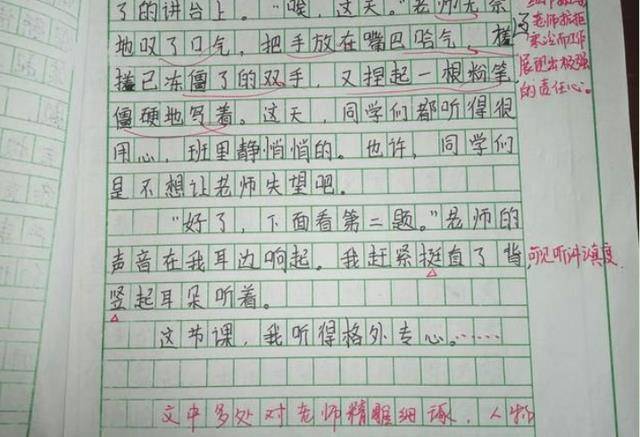 了的讲台上。“唉，这天。”老师无奈
地叹了口气，把手放在嘴巴哈气，搓
搓已冻僵了的双手，又捏起一根粉笔，
僵硬地写着。这天，同学们都听得很
用心，班里静悄悄的。也许，同学们
是不想让老师失望吧。
“好了，下面看第二题。”老师的
声音在我耳边响起。我赶紧挺直了背，
竖起耳朵听着。
这节课，我听得格外专心。……
老师
展现出极强
的责任心。
可见听课认真度
文中多处对老师精雕细琢，人物